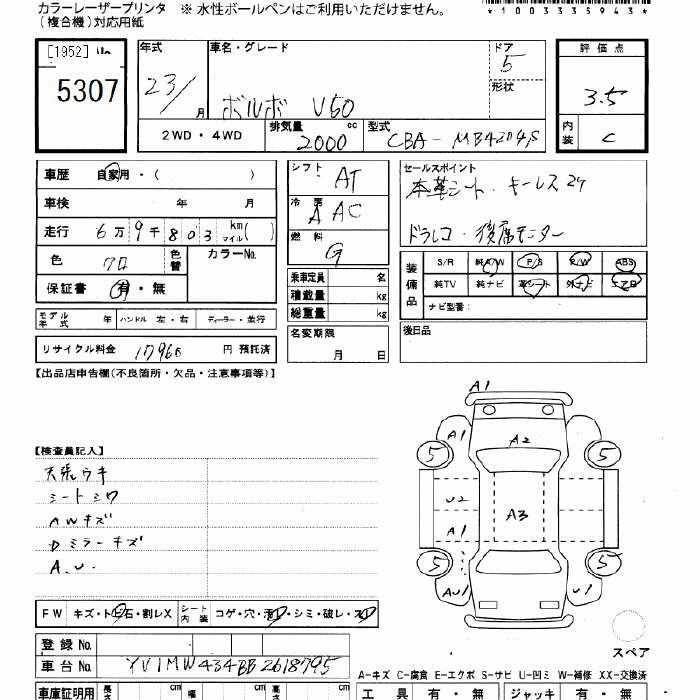 カラーレーザープリンタ ※ 水性ボールペンはご利用いただけません。
(複合機)対応用紙
*1003335943*
[1952]
5307
年式
23/
月
車名・グレード
ボルボ V50
ドア
5
形状
評価点
3.5
内装
C
2WD・4WD
排気量
cc
2000
型式
CBA-MB4204S
車歴 自家用・( )
車検 年 月
走行 6万9千803 km マイル( )
色 クロ 色替 カラーNo.
保証書 有・無
モデル年式 年 ハンドル 左・右 ディーラー・並行
リサイクル料金 17960 円 預託済
シフト AT
冷房 AAC
燃料 G
乗車定員 名
積載量 kg
総重量 kg
名変期限
月 日
セールスポイント
本革シート・キーレス2ケ
ドラレコ・後席モニター
装備品
S/R 純A/W P/S P/W ABS
純TV 純ナビ 革シート 外ナビ エアB
ナビ型番:
後日品
【出品店申告欄(不良箇所・欠品・注意事項等)】
【検査員記入】
天張ウキ
シートシワ
AWキズ
Dミラーキズ
A.U.
A1
A1
A2
A1
5
5
U2
A3
U1
A1
5
5
AU1
A1
スペア
FW キズ・ト石・割レX シート内装 コゲ・穴・・シミ・破レ・
登録No.
車台No. YV1MW434BB2618795
A-キズ C-腐食 E-エクボ S-サビ U-凹ミ W-補修 XX-交換済
車庫証明用 長さ cm 幅 cm cm
工具 有・無 ジャッキ 有・無